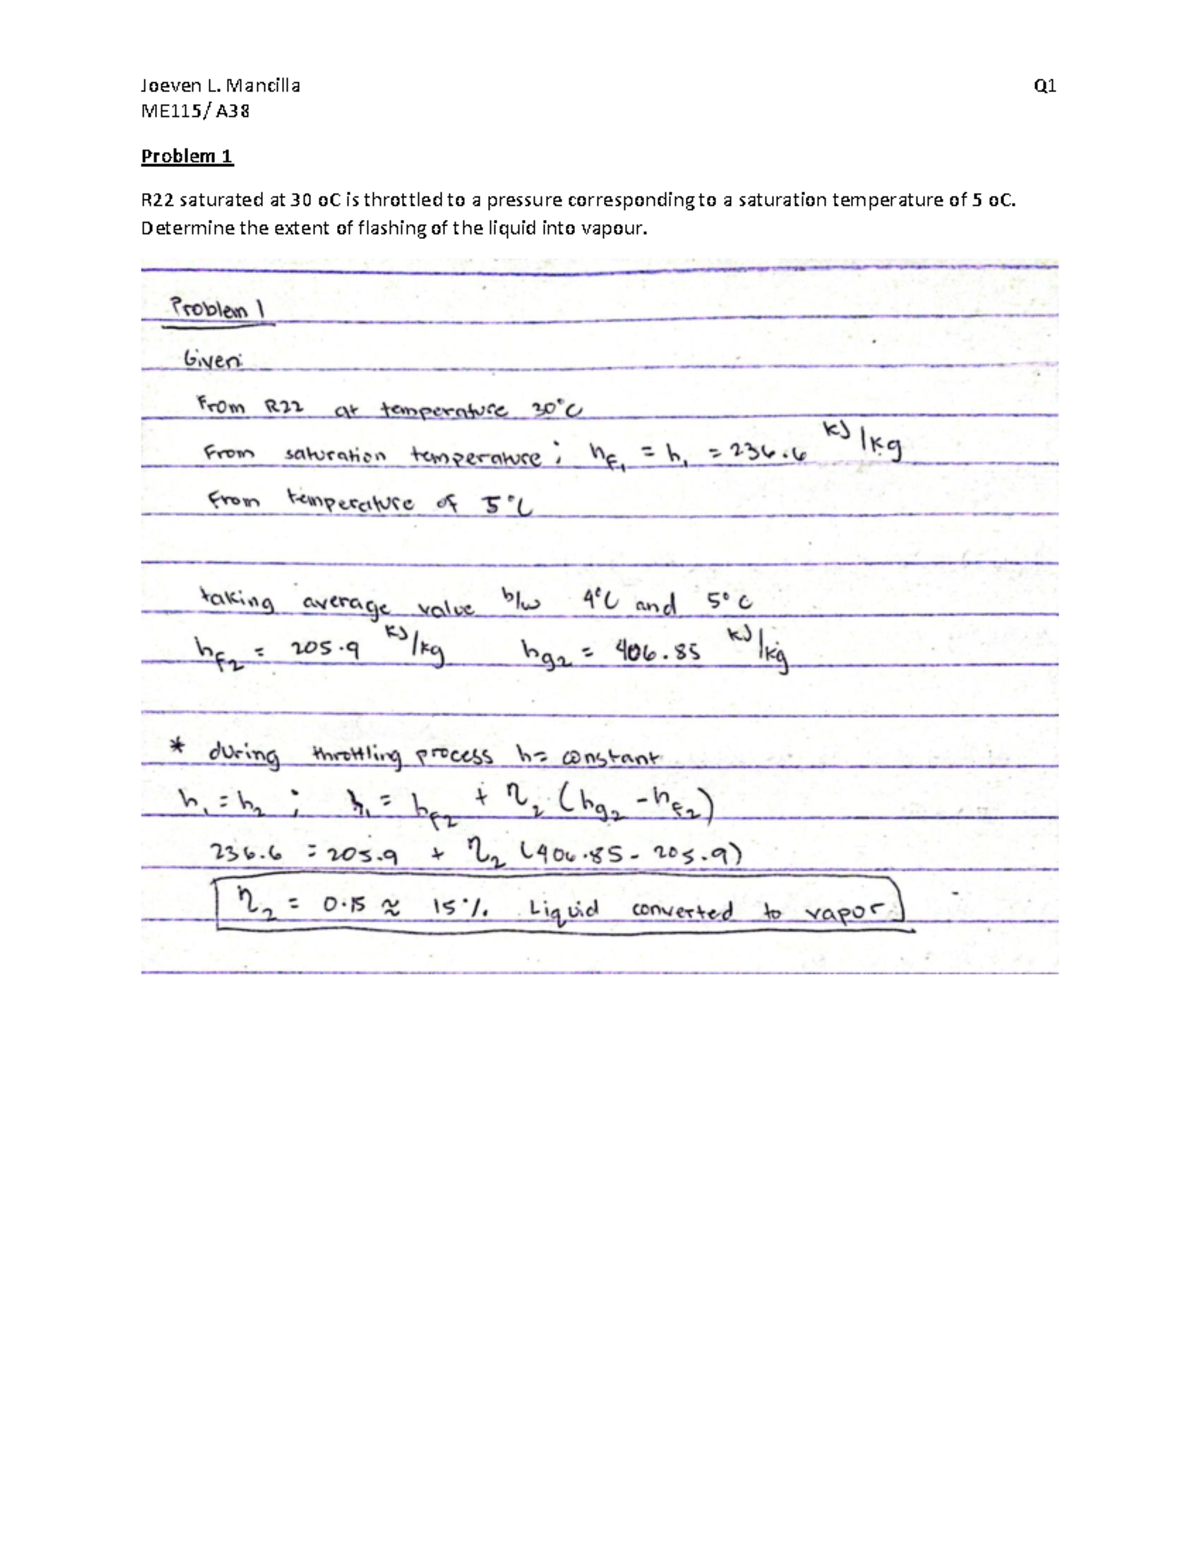 Joeven L. Mancilla Q1
ME115/ A38
Problem 1
R22 saturated at 30 oC is throttled to a pressure corresponding to a saturation temperature of 5 oC.
Determine the extent of flashing of the liquid into vapour.
Problem 1
Given:
From R22 at temperature 30°C
From saturation temperature ; hf1 = h1 = 236.6 kJ/kg
From temperature of 5°C
taking average value b/w 4°C and 5°C
hf2 = 205.9 kJ/kg hg2 = 406.85 kJ/kg
* during throttling process h= constant
h1 = h2 ; h1 = hf2 + η2 (hg2 - hf2)
236.6 = 205.9 + η2 (406.85 - 205.9)
η2 = 0.15 ≈ 15%. Liquid converted to vapor.